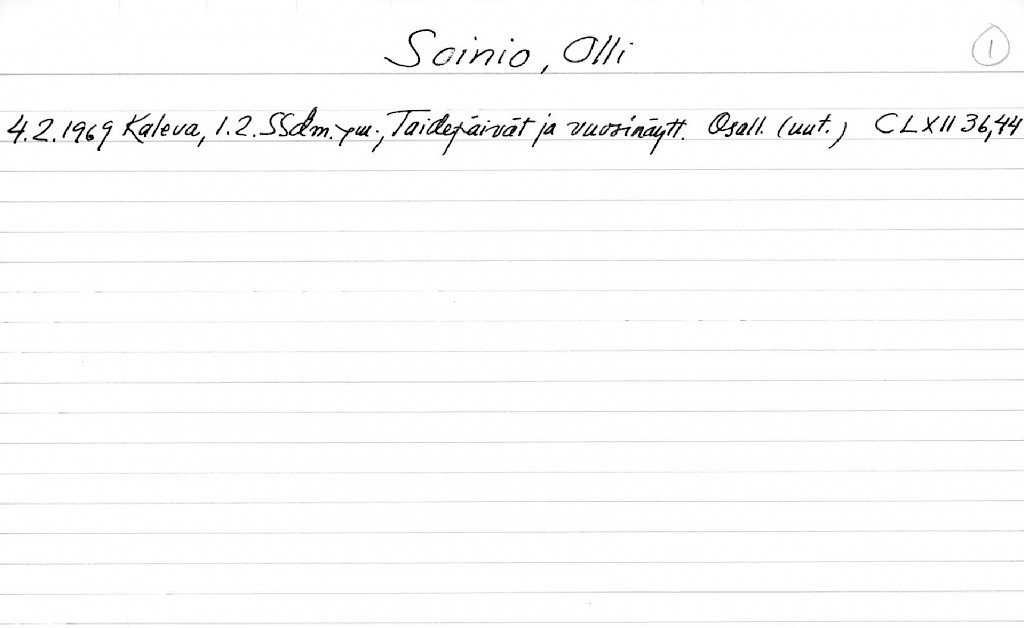 Soinio, Olli
1
4.2.1969 Kaleva, 1.2. SSdm. Taidepäivät ja vuosinäytt. Osall. (uut.) CLXII 36,44